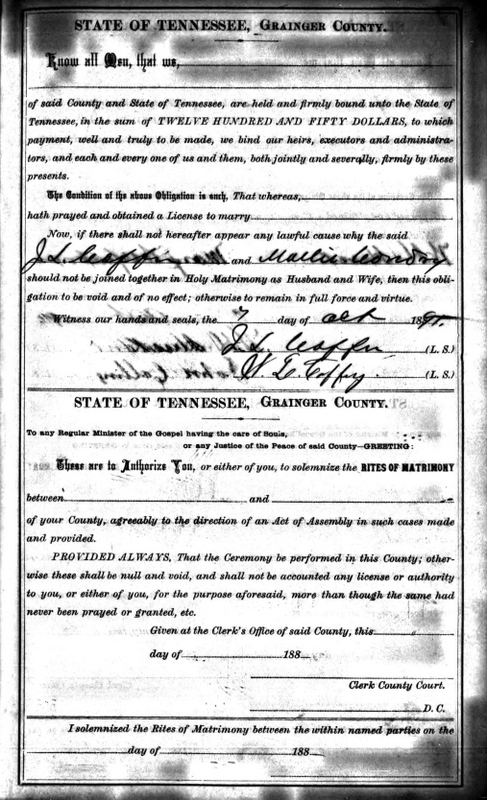 STATE OF TENNESSEE, GRAINGER COUNTY.
Know all Men, that we,
of said County and State of Tennessee, are held and firmly bound unto the State of
Tennessee, in the sum of TWELVE HUNDRED AND FIFTY DOLLARS, to which
payment, well and truly to be made, we bind our heirs, executors and administra-
tors, and each and every one of us and them, both jointly and severally, firmly by these
presents.
The Condition of the above Obligation is such, That whereas,
hath prayed and obtained a License to marry
Now, if there shall not hereafter appear any lawful cause why the said
J. L. and Mollie
should not be joined together in Holy Matrimony as Husband and Wife, then this obli-
gation to be void and of no effect; otherwise to remain in full force and virtue.
Witness our hands and seals, the 7 day of Oct 189
J. L. (L. S.)
W. L. Coffey (L. S.)
STATE OF TENNESSEE, GRAINGER COUNTY.
To any Regular Minister of the Gospel having the care of Souls,
or any Justice of the Peace of said County—GREETING:
These are to Authorize You, or either of you, to solemnize the RITES OF MATRIMONY
between and
of your County, agreeably to the direction of an Act of Assembly in such cases made
and provided.
PROVIDED ALWAYS, That the Ceremony be performed in this County; other-
wise these shall be null and void, and shall not be accounted any license or authority
to you, or either of you, for the purpose aforesaid, more than though the same had
never been prayed or granted, etc.
Given at the Clerk's Office of said County, this
day of 188
Clerk County Court.
D. C.
I solemnized the Rites of Matrimony between the within named parties on the
day of 188